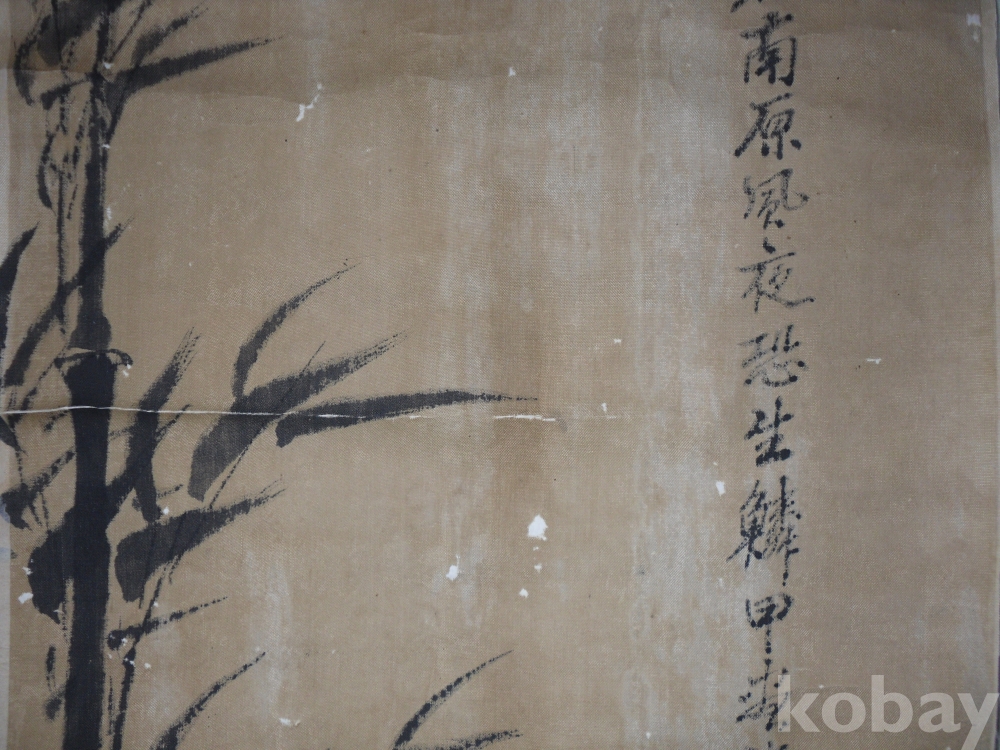 南原風夜恐生鱗甲
kobay